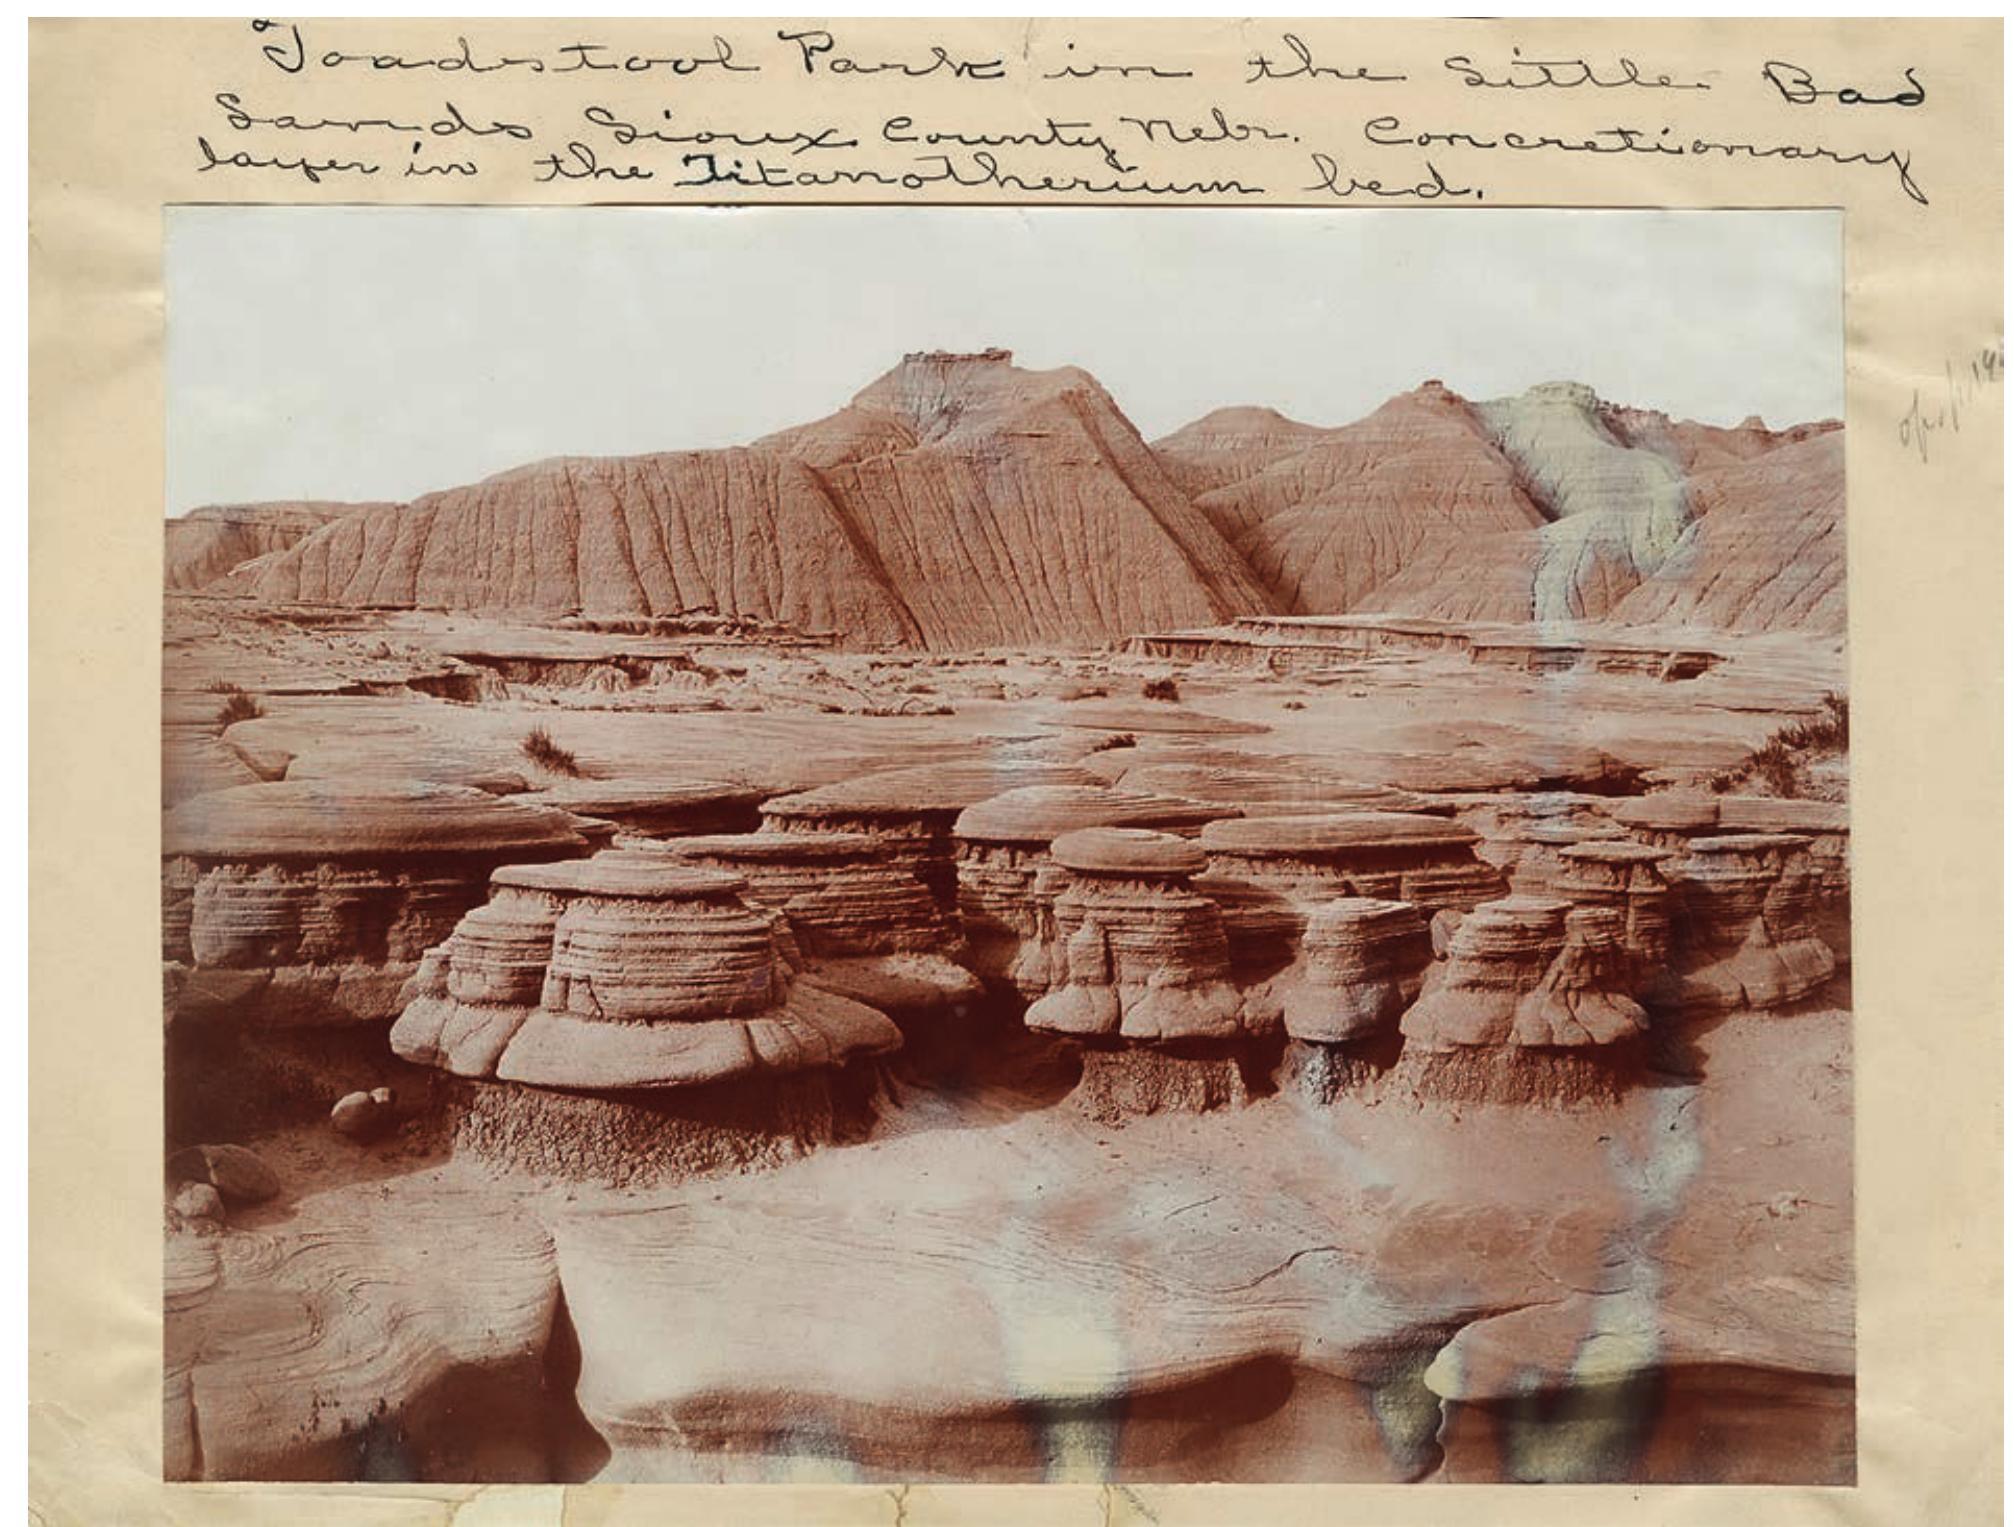 Toadstool Park in the Little Bad
Lands Sioux County, Nebr. Concretionary
layer in the Titanotherium bed.